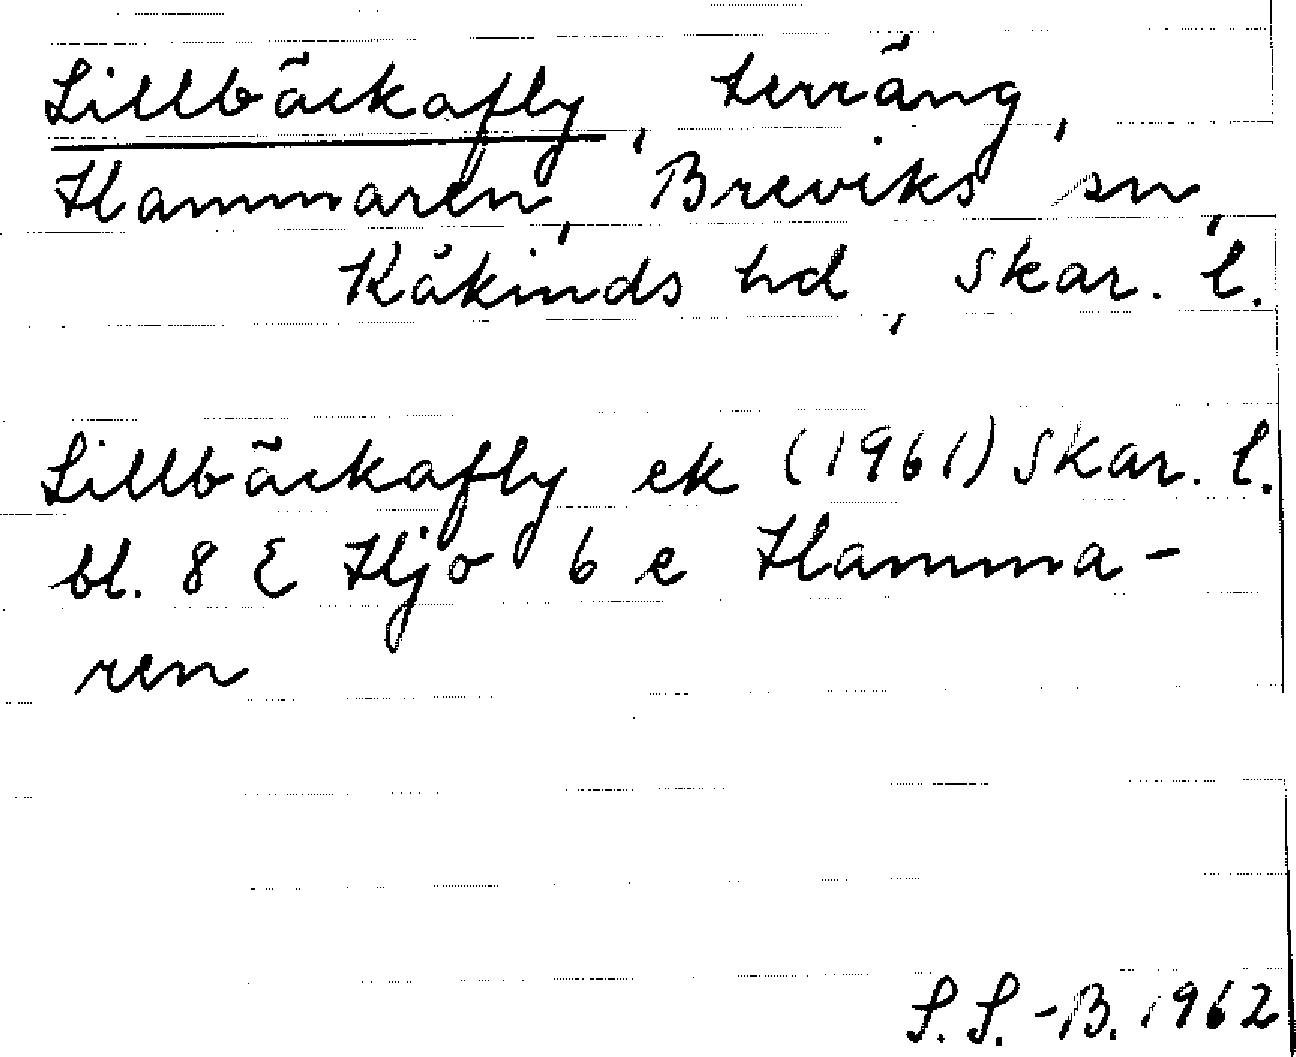 Lillbäckafly, terräng,
Hammaren, Breviks sn,
Kåkinds hd, Skar. l.
Lillbäckafly ek (1961) Skar. l.
bl. 8 E Hjo 6 e Hamma-
ren
S. S.-B. 1962